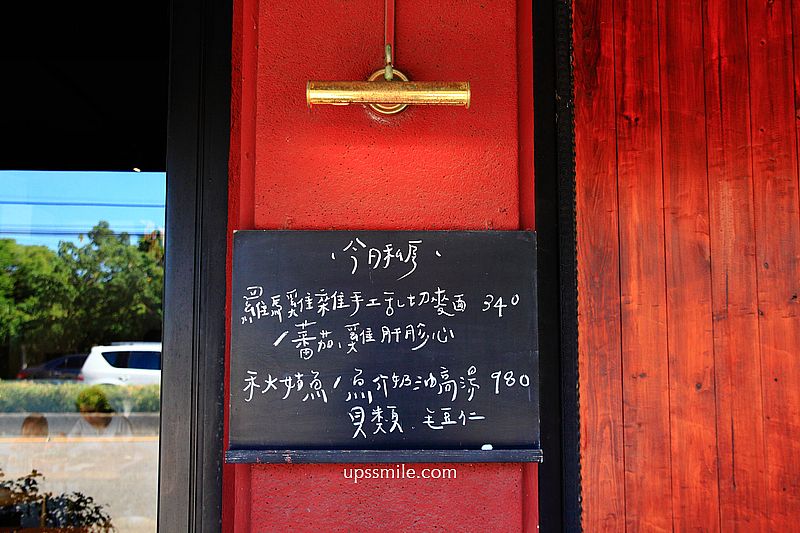 今日私房
羅馬雞雜手工乱切麥面 340
/蕃茄、雞肝胗心
魚/魚介奶油高湯 980
貝類. 毛豆仁
upssmile.com